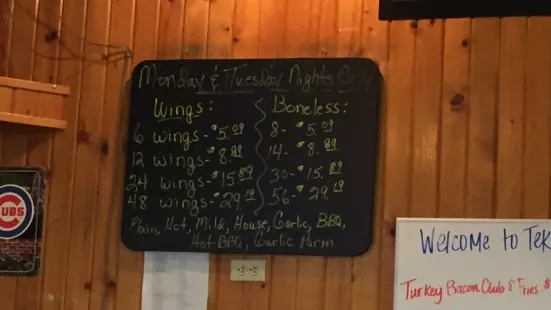 Monday & Tuesday Nights Only
Wings:
6 wings - $5.09
12 wings - $8.89
24 wings - $15.89
48 wings - $29.19
Boneless:
8 - $5.09
14 - $8.89
30 - $15.89
56 - $29.19
Plain, Hot, Mild, House, Garlic, BBQ,
Hot BBQ, Garlic Parm
CUBS
Welcome to Tek
Turkey Bacon Club & Fries $